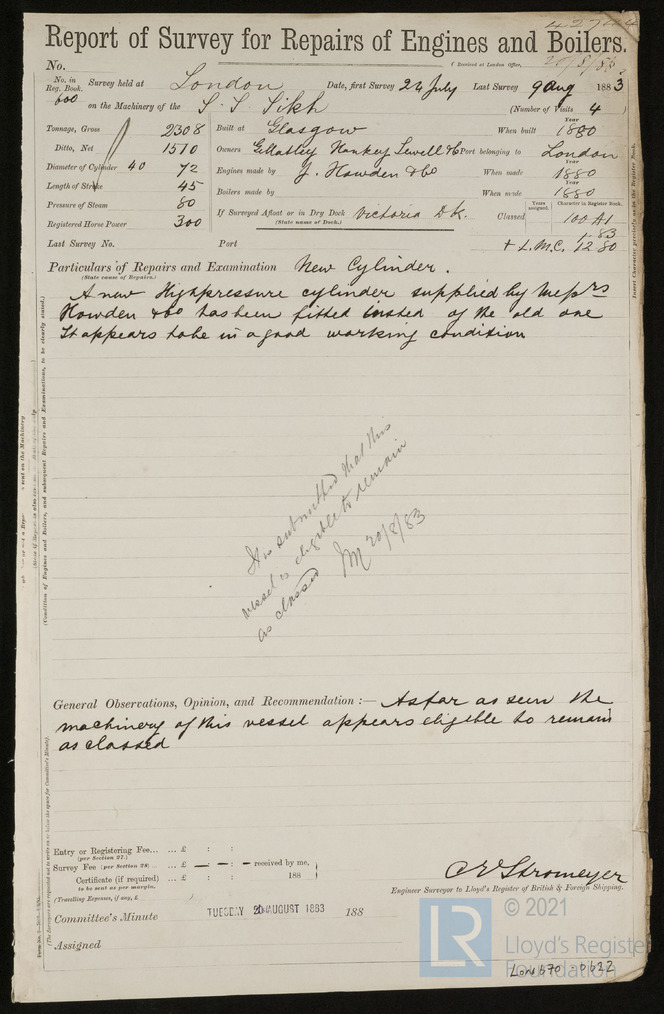 42744
Report of Survey for Repairs of Engines and Boilers.
No. (Received at London Office,
No. in Reg. Book. 600 Survey held at London Date, first Survey 24 July Last Survey 9 Aug 1883
on the Machinery of the S. S. Sikh (Number of Visits 4)
Tonnage, Gross 2308 Built at Glasgow When built Year 1880
Ditto, Net 1510 Owners Gellatley Hankey Sewell & Co Port belonging to London
Diameter of Cylinder 40 72 Engines made by J. Howden & Co When made Year 1880
Length of Stroke 45 Boilers made by When made Year 1880
Pressure of Steam 80
Registered Horse Power 300 If Surveyed Afloat or in Dry Dock Victoria Dk. Classed Years assigned. Character in Register Book. 100 A1
(State name of Dock.) 1.83
Last Survey No. Port + L.M.C. 12.80
Particulars of Repairs and Examination New Cylinder.
(State cause of Repairs.)
A new Highpressure cylinder supplied by Messrs
Howden & Co has been fitted insted of the old one
It appears to be in a good working condition
It is submitted that this
vessel is eligible to remain
as classed
20/8/83
General Observations, Opinion, and Recommendation :— As far as seen the
machinery of this vessel appears eligible to remain
as classed
Entry or Registering Fee... ... £ : :
(per Section 27.)
Survey Fee (per Section 28) ... ... £ — : — : — received by me,
Certificate (if required) ... £ : : 188
to be sent as per margin.
(Travelling Expenses, if any, £
C E Stromeyer
Engineer Surveyor to Lloyd's Register of British & Foreign Shipping.
Committee's Minute TUESDAY 20 AUGUST 1883 188
Assigned
LR © 2021
Lloyd's Register
Foundation
Lon 670-0622
(Condition of Engine and Boilers, and subsequent Repairs and Examinations, to be clearly stated.)
Insert Character precisely as in the Register Book.